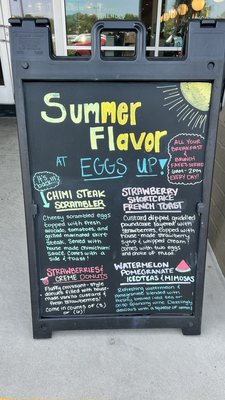 Summer
Flavor
AT EGGS UP!
ALL YOUR
BREAKFAST &
BRUNCH
FAVES SERVED
6AM - 2PM
EVERY DAY!
It's
BACK!!!
CHIMI STEAK
SCRAMBLER
Cheesy scrambled eggs
topped with fresh
avocado, tomatoes, and
grilled marinated skirt
steak. Served with
house made chimichurri
sauce. Comes with a
side & toast!
STRAWBERRY
SHORTCAKE
FRENCH TOAST
Custard dipped griddled
poundcake layered with
strawberries, topped
with house-made strawberry
syrup & whipped cream!
Comes with two eggs
and choice of meat.
STRAWBERRIES &
CREME DONUTS
Fluffy croissant-style
donuts filled with house
made vanilla custard and
fresh strawberries!
Come in counts of (3)
or (6)
WATERMELON
POMEGRANATE
ICED TEAS & MIMOSAS
Refreshing watermelon and
pomegranate blended with
freshly brewed iced tea or
crisp sparkling wine. Dazzlingly
delicious with a squeeze of lemon!